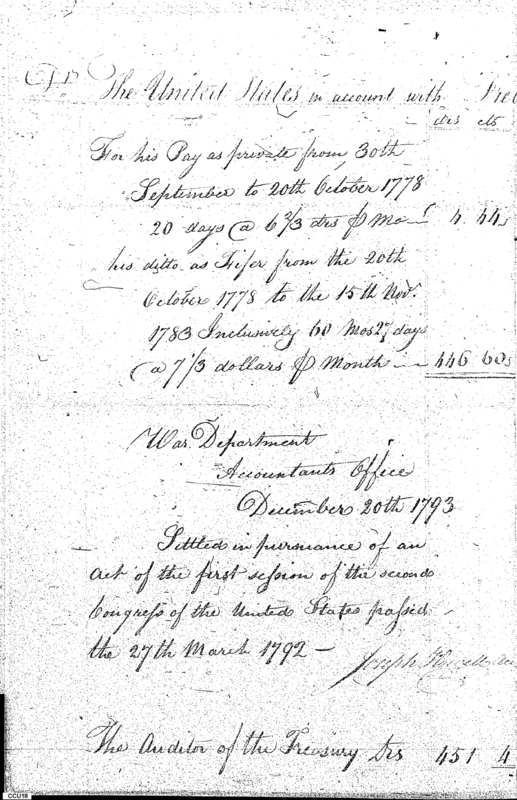 Dr The United States in account with Fre
drs cts
For his Pay as private from 30th
September to 20th October 1778
20 days @ 6 2/3 drs ⅌ Mo 4. 44
his ditto as Fifer from the 20th
October 1778 to the 15th Nov.
1783 Inclusively 60 Mos 27 days
@ 7 1/3 dollars ⅌ Month 446 60
War Department
Accountants Office
December 20th 1793
Settled in pursuance of an
Act of the first session of the second
Congress of the United States passed
the 27th March 1792 —
Joseph Howell
The Auditor of the Treasury Drs 451 4
CCU18